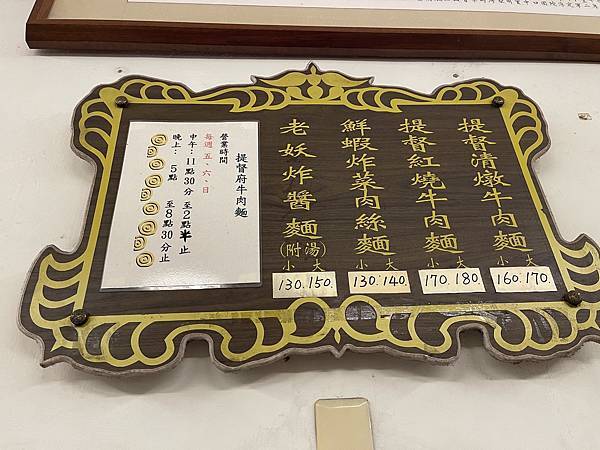 提督清燉牛肉麵
小 大
160. 170.
提督紅燒牛肉麵
小 大
170. 180.
鮮蝦炸菜肉絲麵
小 大
130. 140.
老妖炸醬麵(附湯)
小 大
130. 150.
提督府牛肉麵
營業時間
每週五、六、日
中午:11點30分至2點半止
晚上:5點 至8點30分止